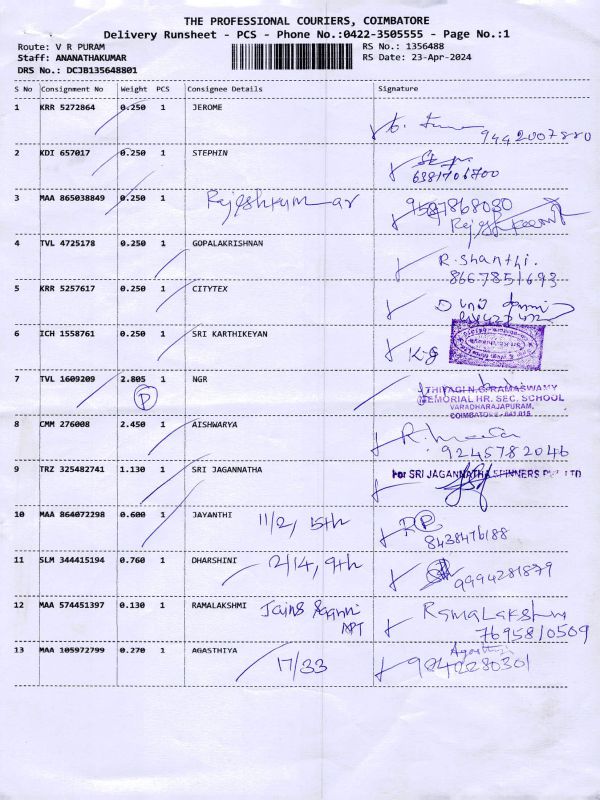 THE PROFESSIONAL COURIERS, COIMBATORE
Delivery Runsheet - PCS - Phone No.:0422-3505555 - Page No.:1
Route: V R PURAM RS No.: 1356488
Staff: ANANATHAKUMAR RS Date: 23-Apr-2024
DRS No.: DCJB135648801
S No Consignment No Weight PCS Consignee Details Signature
1 KRR 5272864 0.250 1 JEROME
9442007880
2 KDI 657017 0.250 1 STEPHIN
6381706700
3 MAA 865038849 0.250 1 Rajeshkumar
9587868030
4 TVL 4725178 0.250 1 GOPALAKRISHNAN R. Shanthi.
8667851693
5 KRR 5257617 0.250 1 CITYTEX
6 ICH 1558761 0.250 1 SRI KARTHIKEYAN K-G
7 TVL 1609209 2.805 1 NGR THIYAGI N.G. RAMASWAMY
P MEMORIAL HR. SEC. SCHOOL
VARADHARAJAPURAM,
COIMBATORE - 641 015
8 CMM 276008 2.450 1 AISHWARYA
9245782046
9 TRZ 325482741 1.130 1 SRI JAGANNATHA For SRI JAGANNATHA SPINNERS PVT LTD
10 MAA 864072298 0.600 1 JAYANTHI 11/2, 15th P
8438476188
11 SLM 344415194 0.760 1 DHARSHINI 2/14, 9th
9994281879
12 MAA 574451397 0.130 1 RAMALAKSHMI Jains APT Ramalakshmi
7695810509
13 MAA 105972799 0.270 1 AGASTHIYA 17/33
9940280301